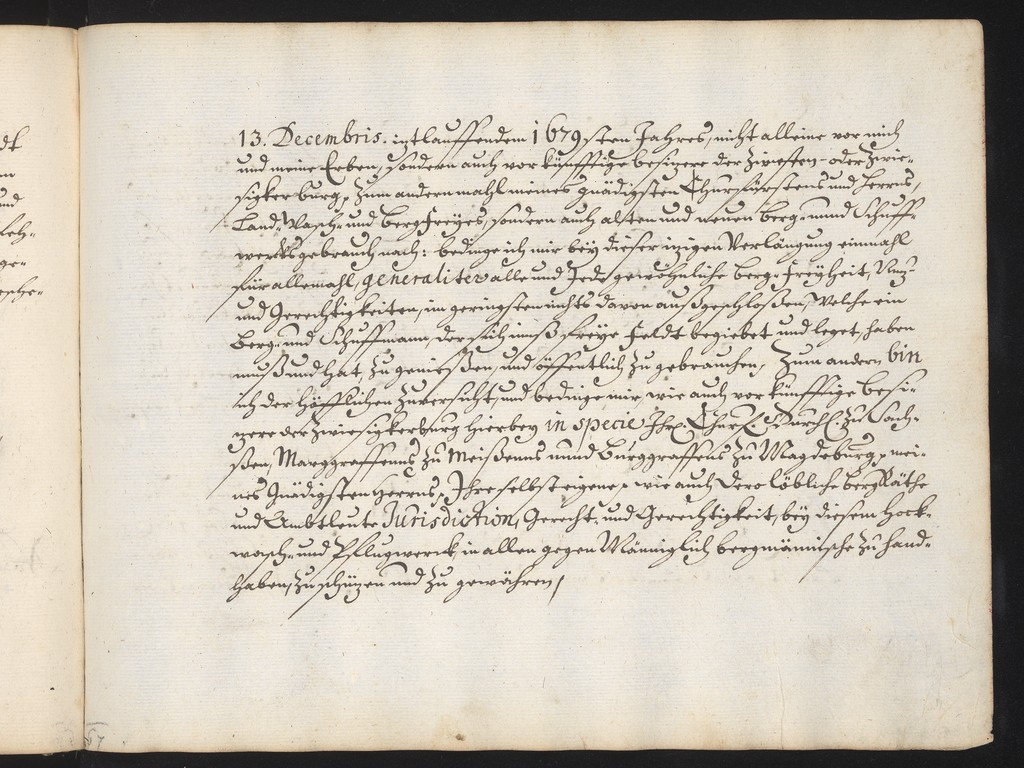 13. Decembris. itztlauffendem 1679 sten Jahres, nicht alleine vor mich
und meine Erben, sondern auch vor künfftige besizere der Zwisten- oder Zwie-
sigkerburg, zum andern mahl meines gnädigsten Churfürstens und Herrns,
Land- Wasch- und BergFreyes, sondern auch alsten und neuen berg- unnd Schuff-
wercksgebrauch nach: bedinge ich mir bey dieser izigen Verlängung einmahl
für allemahl, generaliter alle und Jede gewöhnliche berg-Freyheit, Nuz-
und Gerechtigkeiten, im geringsten nichts davon außgeschloßen, Welche ein
Berg- und Schuffmann, der sich ins freye Feldt begiebet und leget, haben
muß und hat, zu genießen, und öffentlich zu gebrauchen, Zum andern bin
ich der Höfflichen Zuversicht, und bedinge mir, wie auch vor künfftige besi-
zere der Zwiesigkerburg hierbey in specie Ihr. Churf. Durchl. zu Sach-
ßen, Marggraffenns zu Meißenns unnd Burggraffens zu Magdeburg, mei-
nes Gnädigsten Herrns, Ihre selbst eigene, wie auch Dero löbliche berg Räthe
und Ambtleute Jurisdiction, Gerecht- und Gerechtigkeit, bey diesem Hock-
wasch- und Pflugwerck, in allen gegen Männiglich bergmännische zu hand-
haben, zu schüzen und zu gewähren,